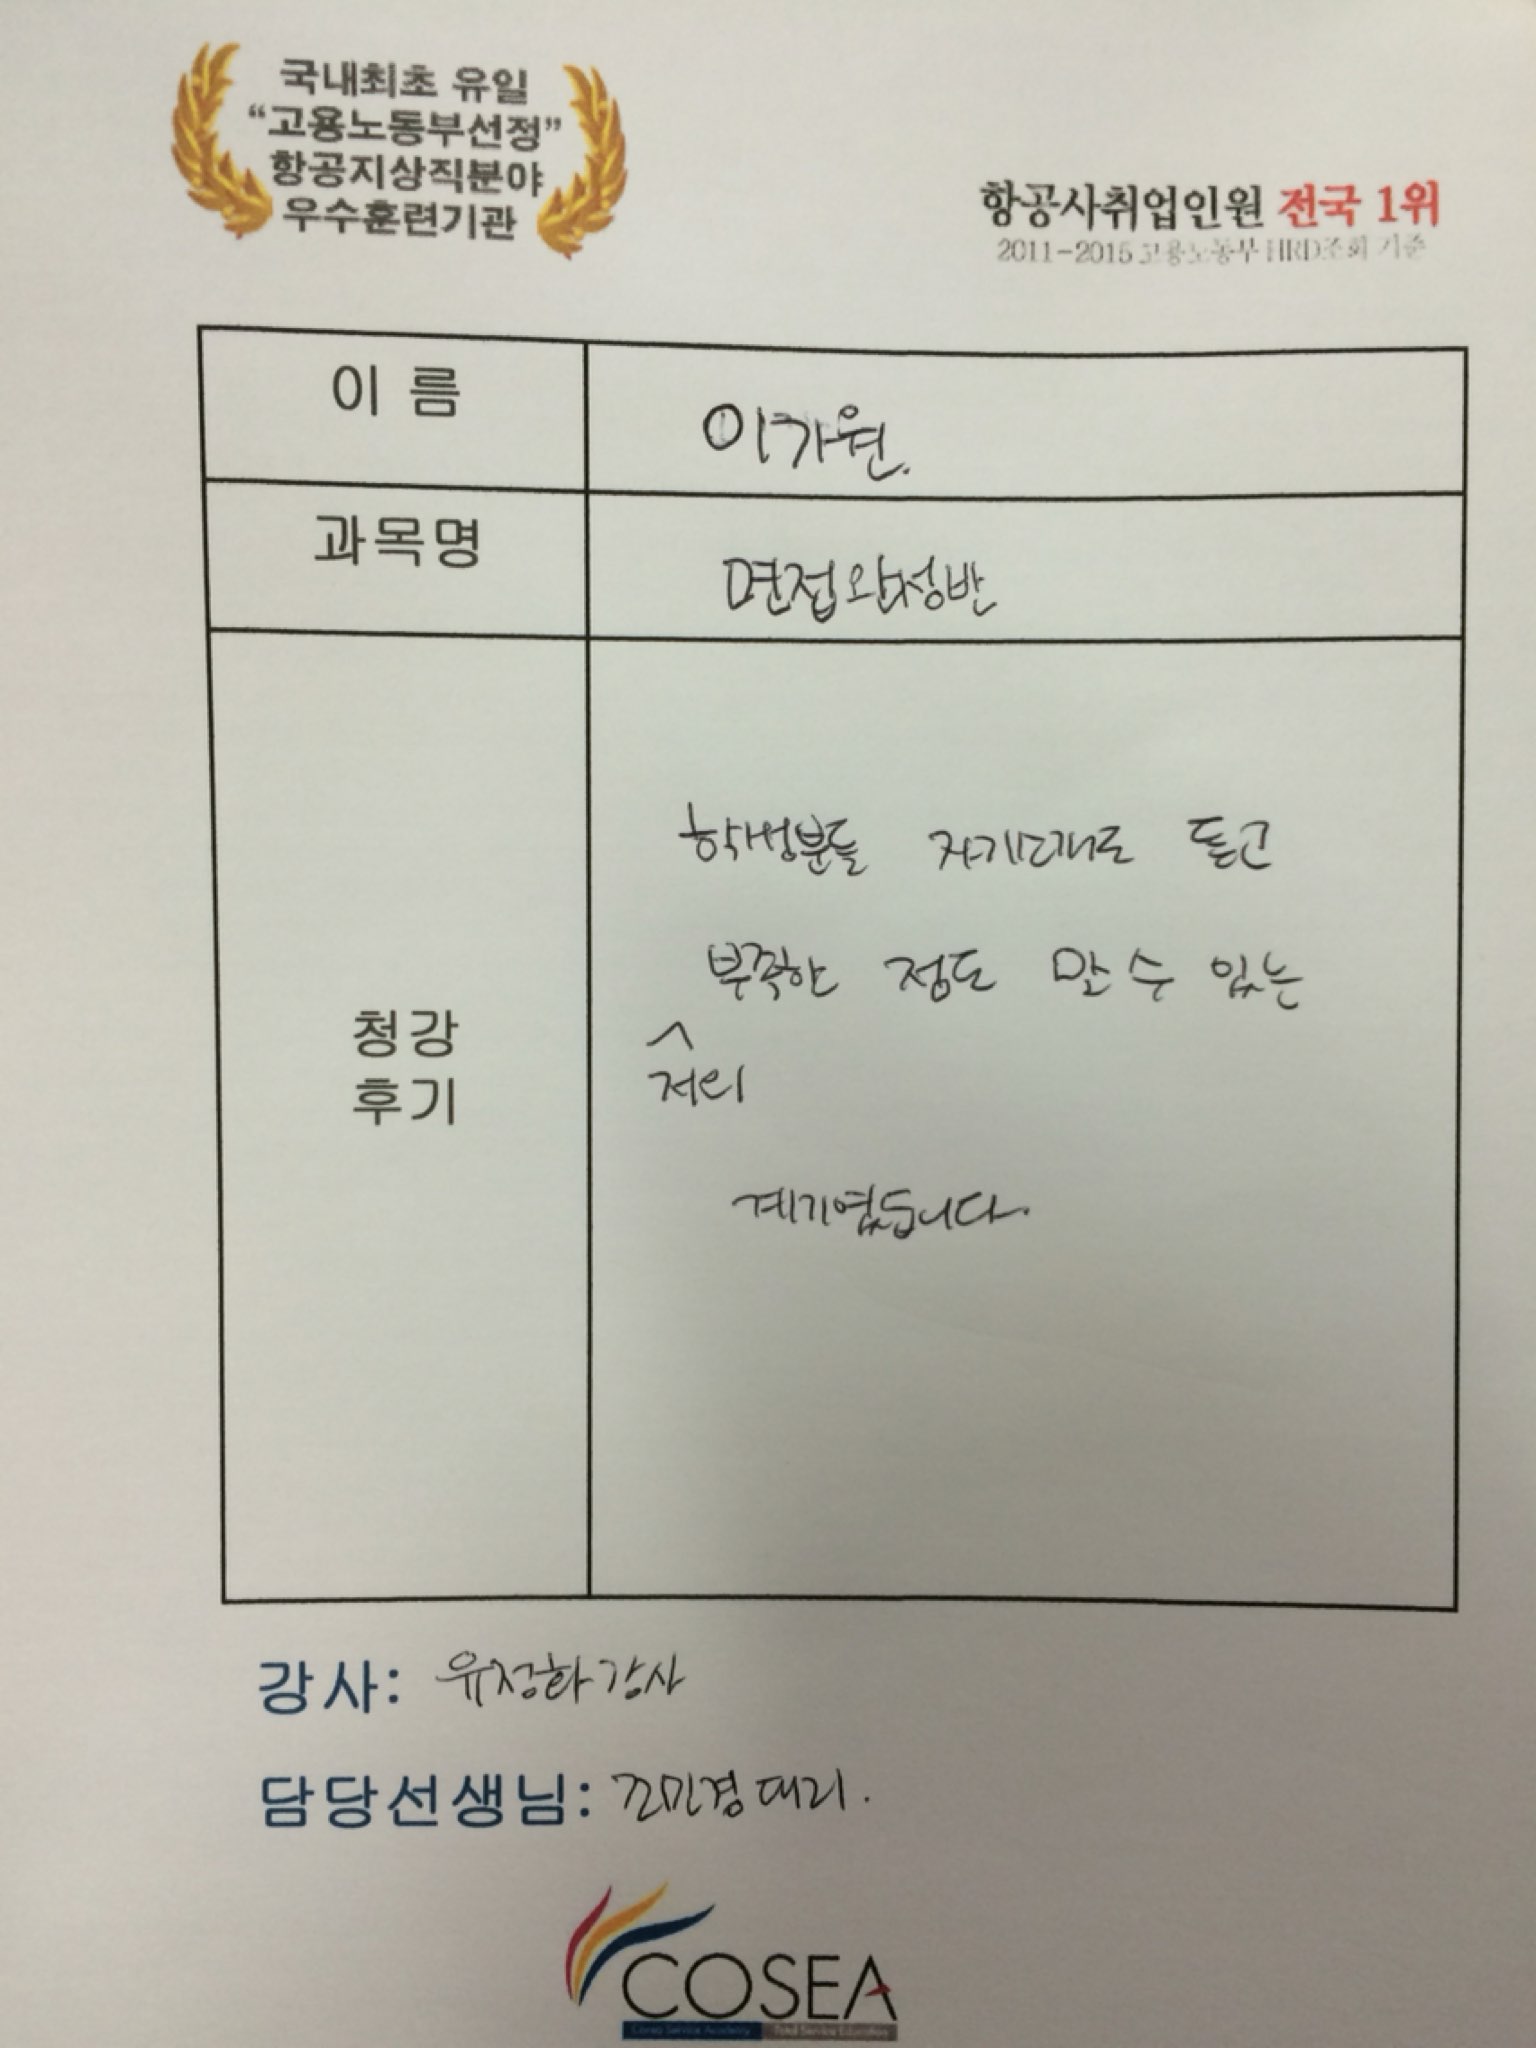 국내최초 유일
“고용노동부선정”
항공지상직분야
우수훈련기관
항공사취업인원 전국 1위
2011-2015 고용노동부 HRD조회 기준
이 름
이가원.
과목명
면접완성반
청강
후기
학생분들 자기소개로 듣고
부족한 정도 알 수 있는
^
저의
계기였습니다.
강사: 유정화강사
담당선생님: 민경대리.
COSEA
Corea Service Academy Total Service Education